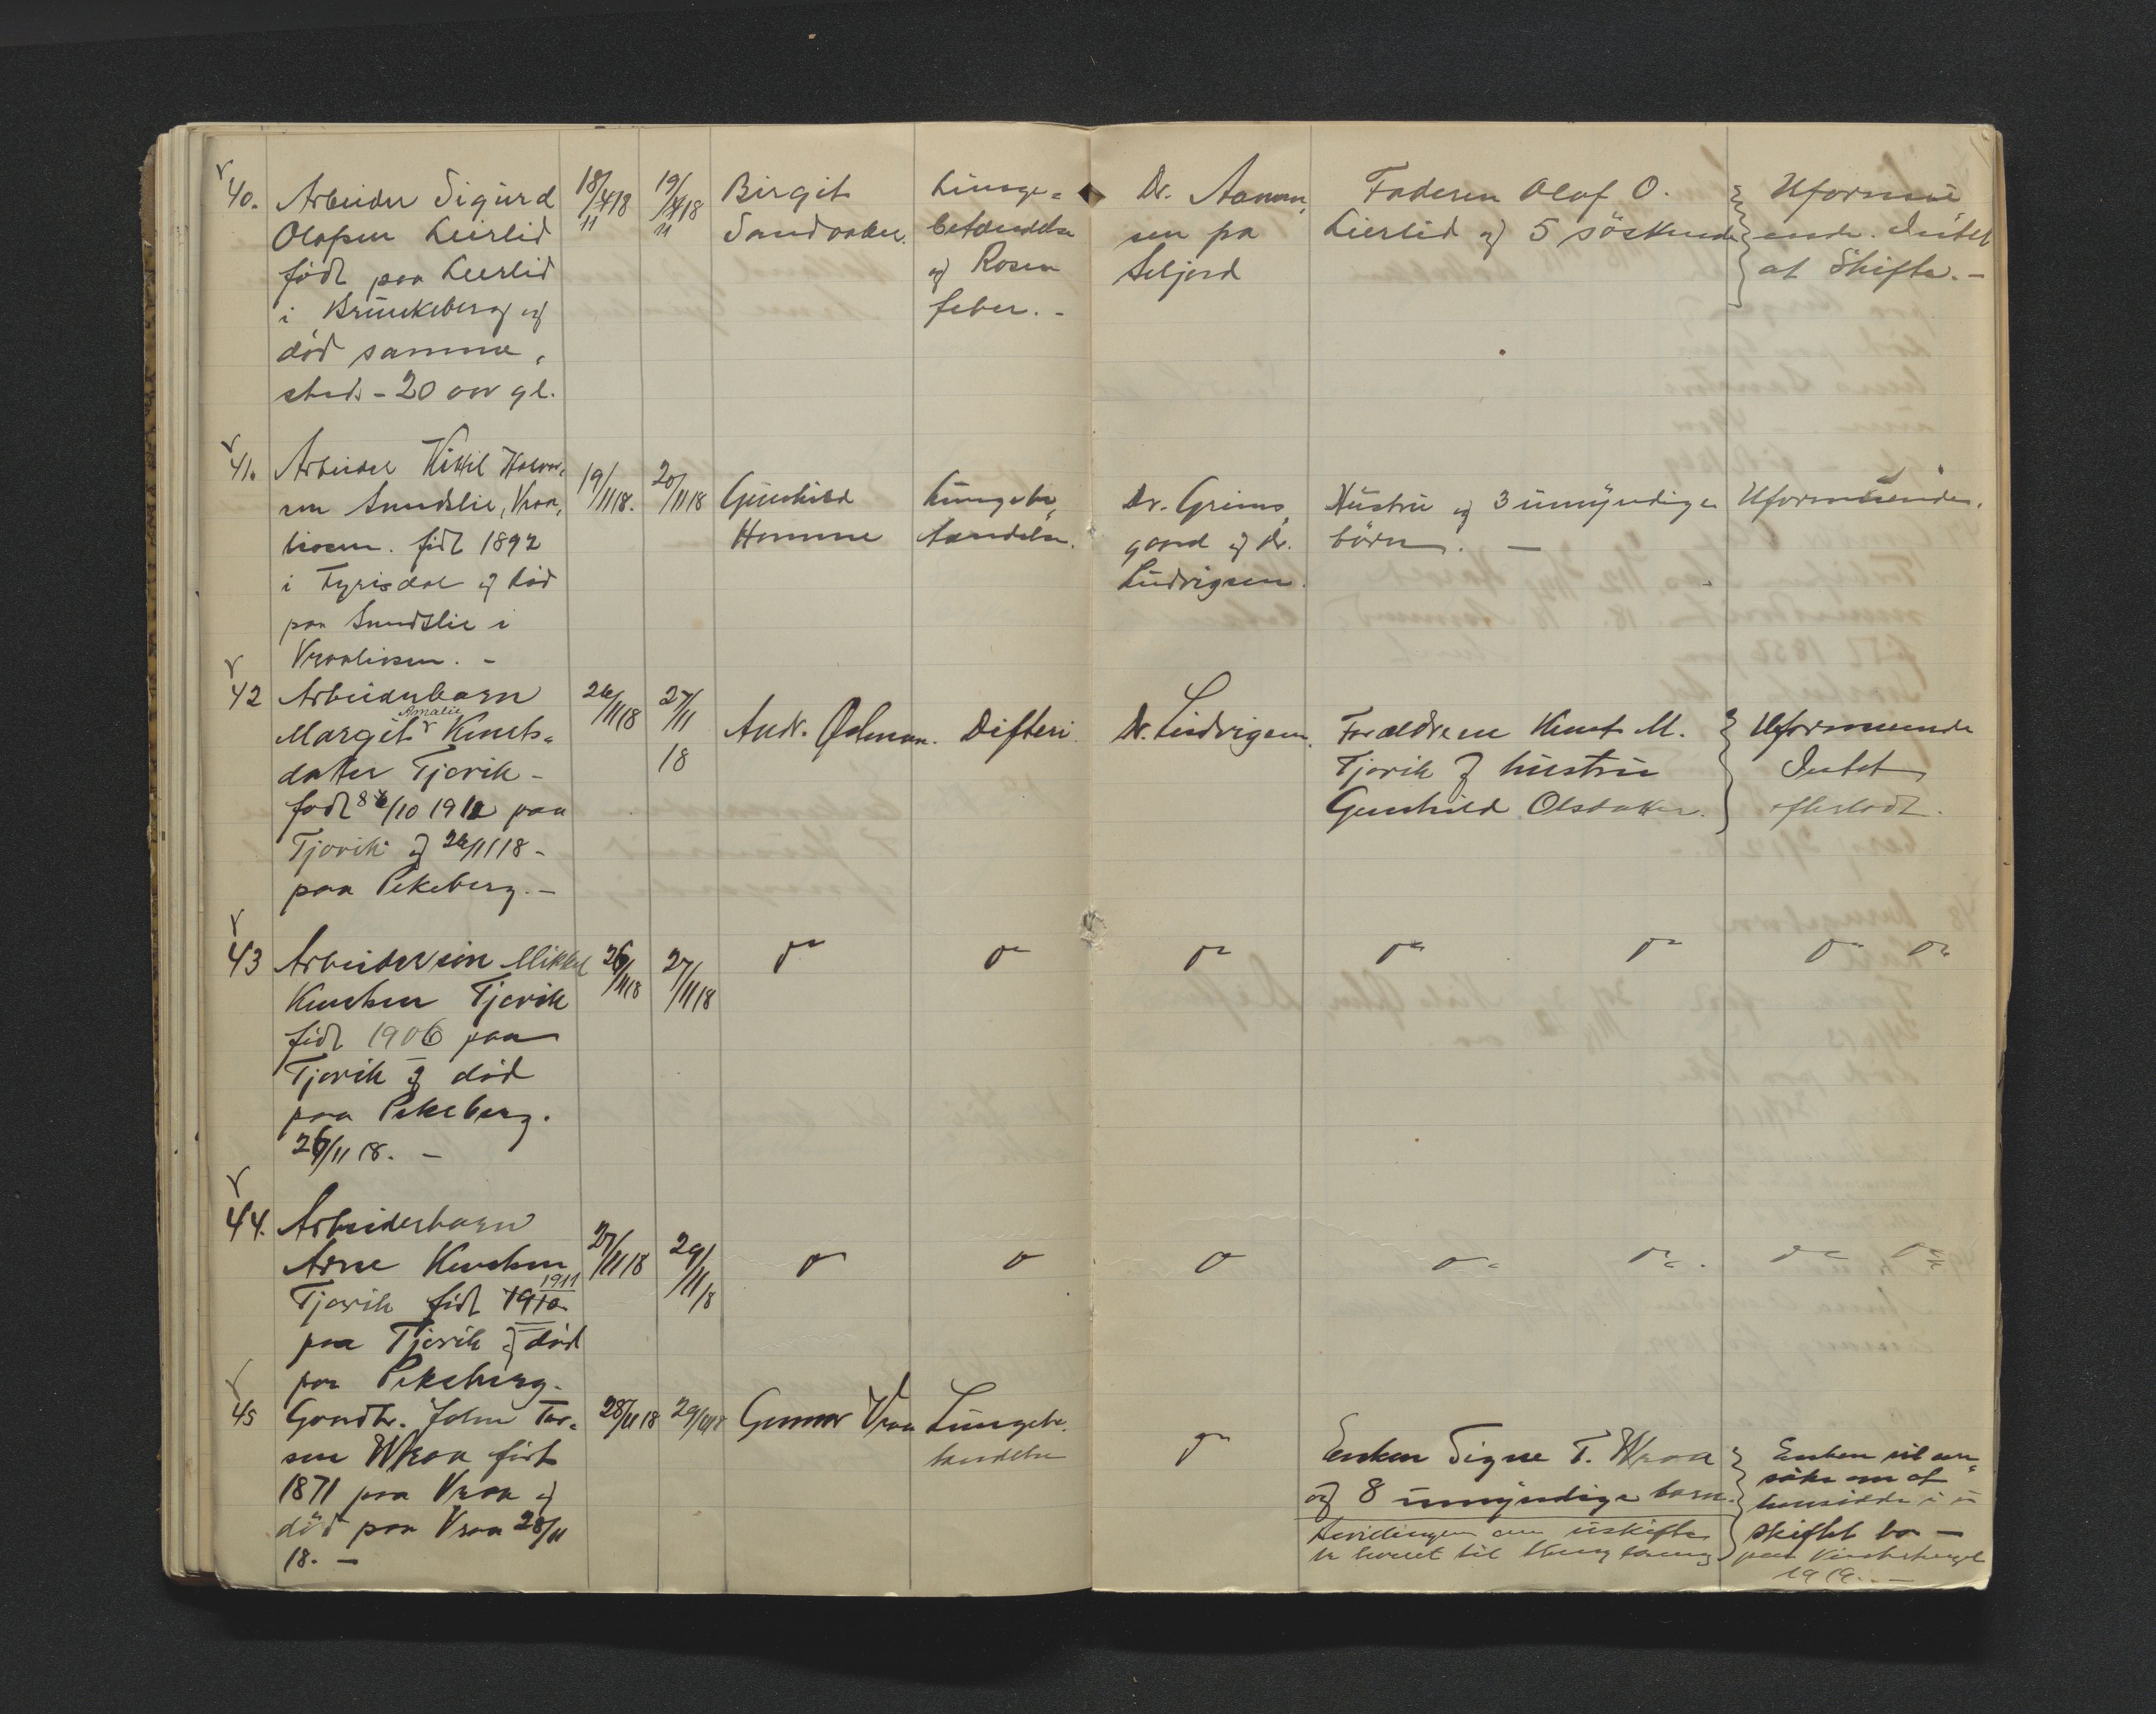 40.
Arbeider Sigurd
Olafsen Lierlid
født paa Lierlid
i Brunkeberg og
död samme,
sted. - 20 aar gl.
18/11 18
19/11 18
Birgit
Sandaaker.
Lunge=
betændelse
og Rosen
feber. -
Dr. Aanon,
sen pa
Seljord
Faderen Olaf O.
Lierlid og 5 söskende
Uformu
ende. Intet
at Skifte. -
41.
Arbeider Kittil Halvor,
sen Sundslie, Vraa,
liosen. født 1892
i Fyrisdal og död
paa Sundslie i
Vraaliosen. -
19/11 18.
20/11 18
Gunhild
Homme
Lungebe,
tændelse.
Dr. Grims,
gaard og Dr.
Ludvigsen.
Hustru og 3 umyndige
börn. -
Uformuende.
42
Arbeiderbarn
Amalie
Margit Knuts=
datter Tjovik -
født 8/10 1912 paa
Tjovik og 26/11 18 -
paa Pikeberg. -
26/11 18
27/11
18
Andr. Østmann.
Difteri
Dr. Ludvigsen.
Forældrene Knut M.
Tjovik og hustru
Gunhild Olsdatter.
Uformuende
Intet
efterladt.
43
Arbeidersön Mikkel
Knutsen Tjovik
födt 1906 paa
Tjovik og död
paa Pikeberg.
26/11 18. -
26/11 18
27/11 18
44.
Arbeiderbarn
Arne Knutsen
1911
Tjovik födt 1910
paa Tjovik og död
paa Pikeberg.
27/11 18
29/11 18
45
Gaardbr. John Tor=
sen Wraa född
1871 paa Vraa og
död paa Vraa 28/11
18. -
28/11 18
29/11 18
Gunnar Vraa
Lungebe.
tændelse
Enken Signe T. Wraa
og 8 umyndige barn.
Bevillingen om uskiftet
bo
Enken vil an=
söke om at
hensidde i u
skiftet bo -
1919. -